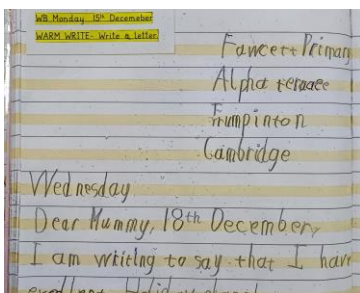 WB Monday 15th Decemeber
WARM WRITE- Write a letter
Fawcett Primary
Alpha terrace
Trumpinton
Cambridge
Wednesday
Dear Mummy, 18th December,
I am writing to say that I have
excellent Holiday